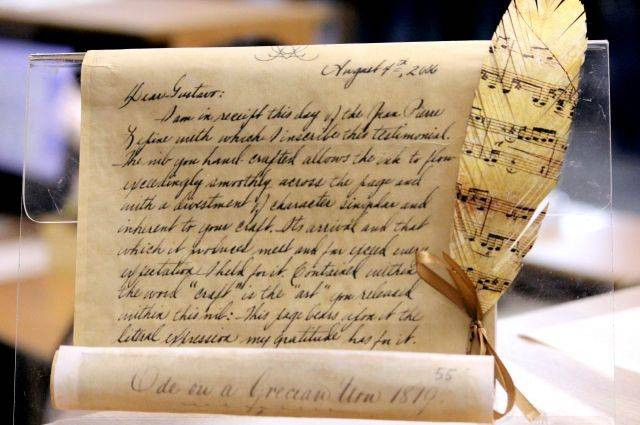 August 4th, 2006
Dear Gustavo:
I am in receipt this day of the Jean Pierre
Lépine with which I inscribe this testimonial.
The nib you hand crafted allows the ink to flow
exceedingly smoothly across the page and
with a divestment of character singular and
inherent to your craft. Its arrival and that
which it produced meet and far exceed every
expectation I held for it. Contained within
the word "craft" is the "art" you released
within this nib: - this page bears upon it the
literal expression my gratitude has for it.
55
Ode on a Grecian Urn 1819.